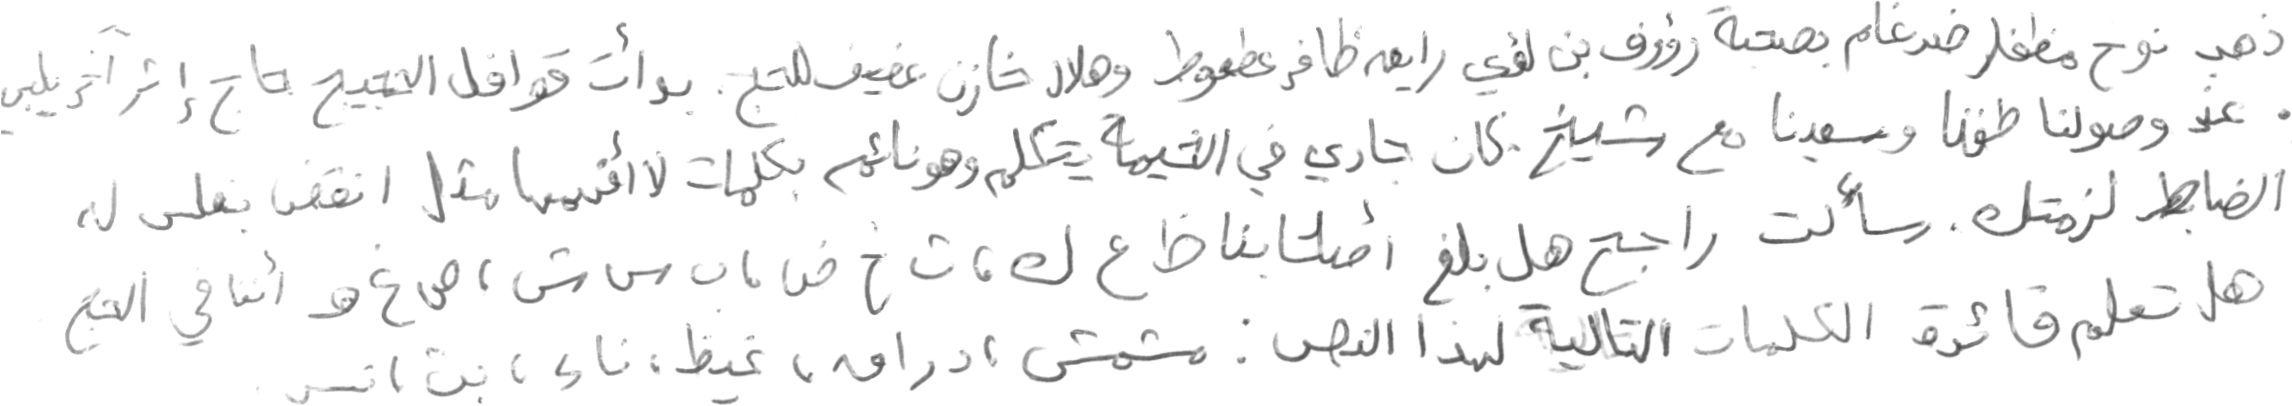 ذهب نوح مظفار ضرغام بصحبة رؤوف بن لؤي رايق ظافر عطعوط وهلال خازن عفيف للحج. بدأت قوافل الحجيج حاج إثر آخر يلبي
. عند وصولنا طفنا وسعينا مع شيخ. كان جاري في الخيمة يتكلم وهو نائم بكلمات لا أفهمها مثل انقض بغلس له
الضابط لزمتك. سألت راجح هل بلغ أصلتا بنا ظ ع ك، ث خ ض، ب س ش، ص غ هـ أننا في الحج
هل تعلم فائدة الكلمات التالية لهذا النص: مشمش، دراق، غيظ، ناء، بث، انس.